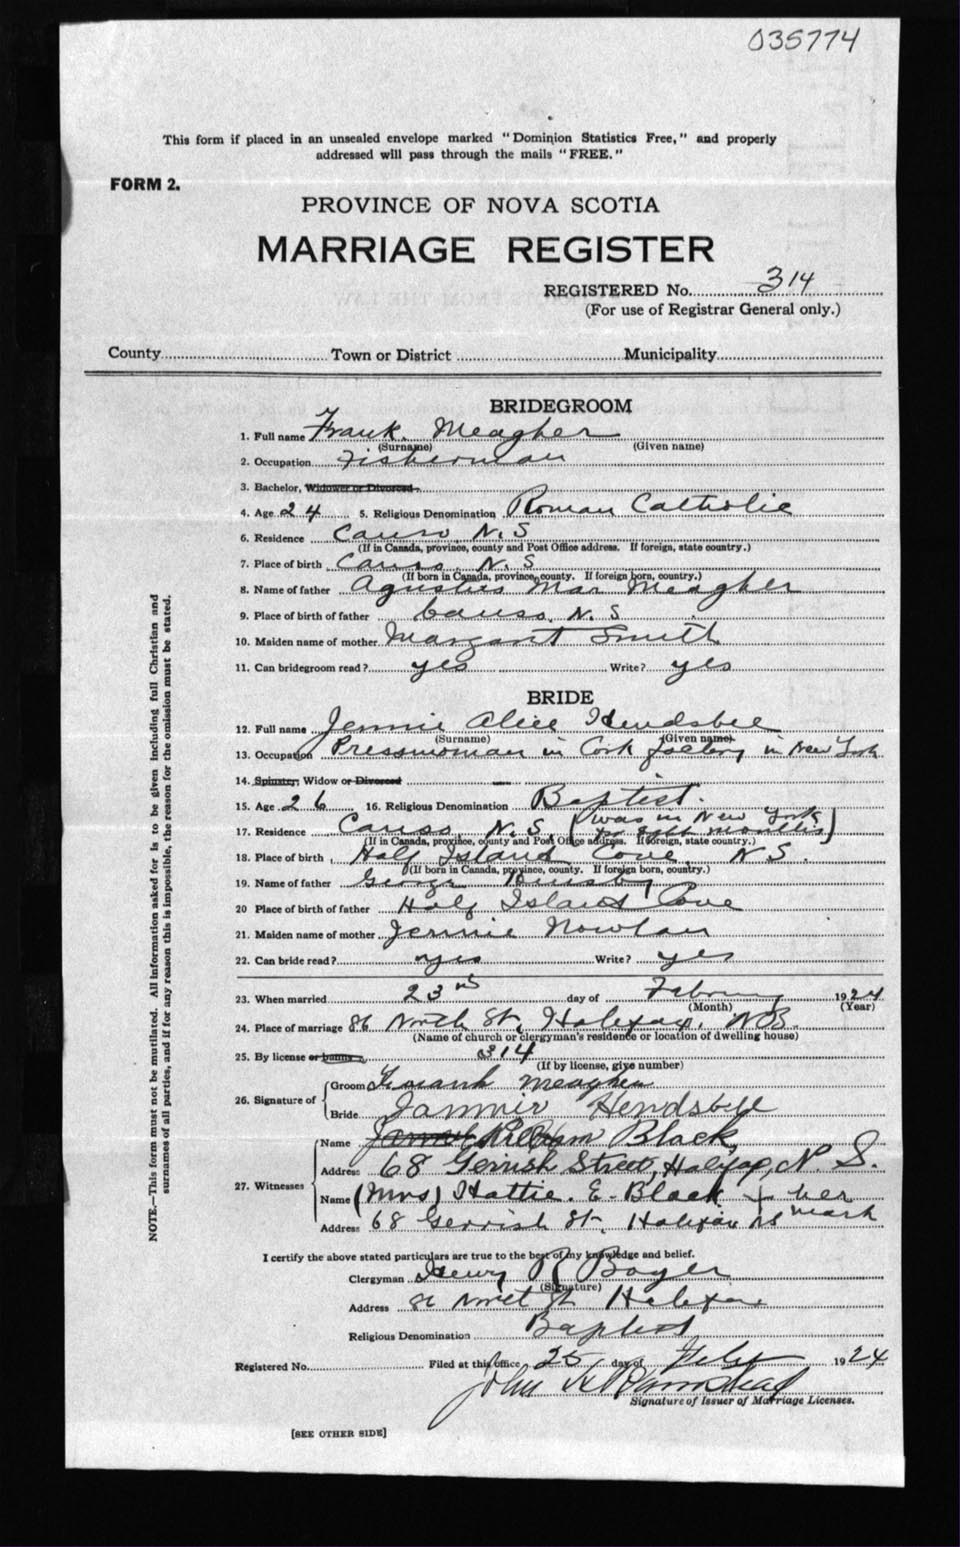 035774
This form if placed in an unsealed envelope marked "Dominion Statistics Free," and properly
addressed will pass through the mails "FREE."
FORM 2.
PROVINCE OF NOVA SCOTIA
MARRIAGE REGISTER
REGISTERED No. 314
(For use of Registrar General only.)
County Town or District Municipality
BRIDEGROOM
1. Full name Frank Meagher
(Surname) (Given name)
2. Occupation Fisherman
3. Bachelor, Widower or Divorced
4. Age 24 5. Religious Denomination Roman Catholic
6. Residence Canso N.S
(If in Canada, province, county and Post Office address. If foreign, state country.)
7. Place of birth Canso N.S
(If born in Canada, province, county. If foreign born, country.)
8. Name of father Agustus Mar Meagher
9. Place of birth of father Canso, N.S.
10. Maiden name of mother Margaret Smith
11. Can bridegroom read? yes Write? yes
BRIDE
12. Full name Jennie Alice Hendsbee
(Surname) (Given name)
13. Occupation Presswoman in Cork factory in New York
14. Spinster, Widow or Divorced
15. Age 26 16. Religious Denomination Baptist.
(was in New York
17. Residence Canso N.S. for eght months)
(If in Canada, province, county and Post Office address. If foreign, state country.)
18. Place of birth Half Island Cove, N S.
(If born in Canada, province, county. If foreign born, country.)
19. Name of father George
20 Place of birth of father Half Island Cove
21. Maiden name of mother Jennie Nowlan
22. Can bride read? yes Write? yes
23. When married 23rd day of February 1924
(Month) (Year)
24. Place of marriage 86 North St, Halifax, N.S.
(Name of church or clergyman's residence or location of dwelling house)
25. By license or banns 314
(If by license, give number)
26. Signature of
Groom Frank Meagher
Bride Jannie Hendsbee
27. Witnesses
Name William Black
Address 68 Gerrish Street, Halifax, N. S.
Name (Mrs) Hattie. E. Black + her
mark
Address 68 Gerrish St, Halifax NS
I certify the above stated particulars are true to the best of my knowledge and belief.
Clergyman Henry R Boyer
(Signature)
Address 86 North St Halifax
Religious Denomination Baptist
Registered No. Filed at this office, 25 day of Feby 1924
John
Signature of Issuer of Marriage Licenses.
[SEE OTHER SIDE]
NOTE.—This form must not be mutilated. All information asked for is to be given including full Christian and
surnames of all parties, and if for any reason this is impossible, the reason for the omission must be stated.